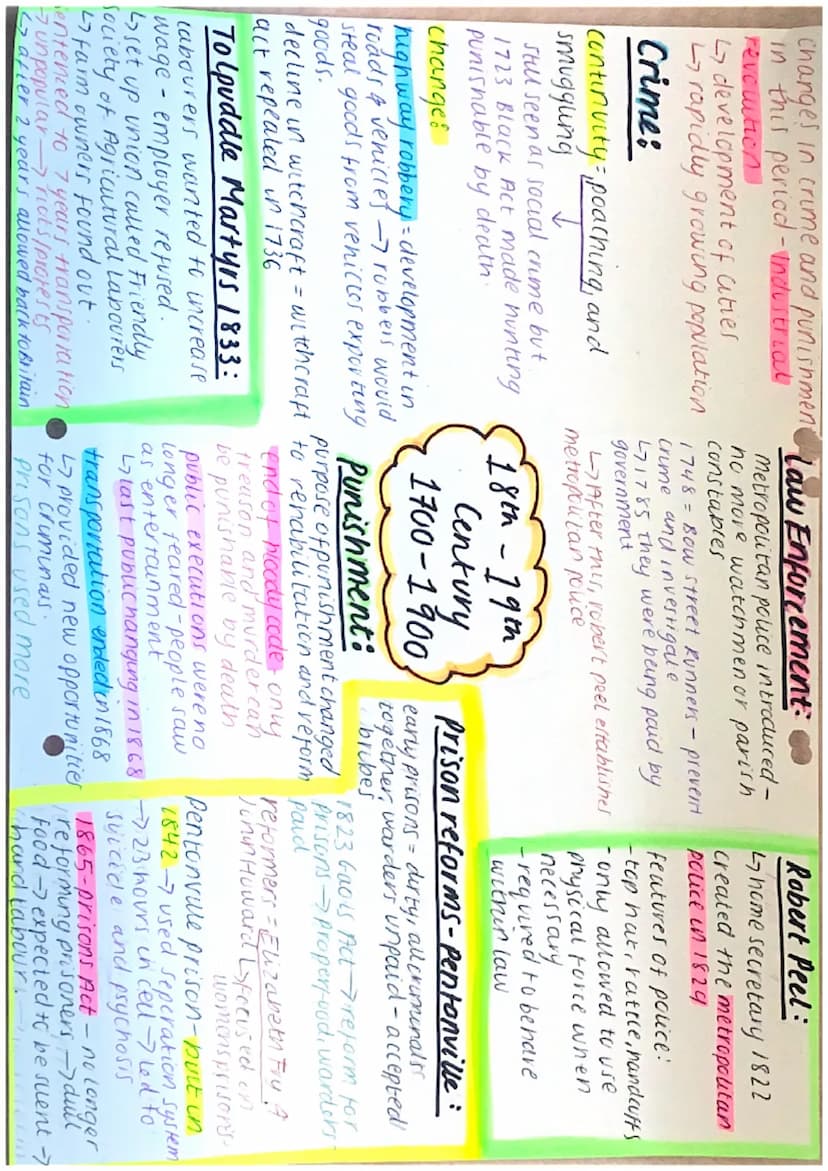 changes in crime and punishment
in this period - industrial
revolution
↳ development of cities
↳ rapidly growing population
Crime:
continuity = poaching and
smuggling
still seen as social crime but
1723 Black Act made hunting
punishable by death.
change:
highway robbery = development in
roads & vehicles → robbers would
steal goods from vehicles exporting
goods.
decline in witchcraft = witchcraft
act repealed in 1736
Tolpuddle Martyrs 1833:
labourers wanted to increase
wage - employer refused.
↳ set up union called Friendly
Society of Agricultural Labourers
↳ farm owners found out.
sentenced to 7 years transportation
→ unpopular → riots/protests
↳ after 2 years allowed back to Britain
Law Enforcement:
metropolitan police introduced -
no more watchmen or parish
constables
1748 = Bow Street Runners - prevent
crime and investigate
↳ 1785 they were being paid by
government
↳ After this, robert peel establishes
metropolitan police
18th - 19th
Century
1700 - 1900
Punishment:
purpose of punishment changed
to rehabilitation and reform
end of bloody code - only
treason and murder can
be punishable by death
public executions were no
longer feared - people saw
as entertainment
↳ last public hanging in 1868
transportation ended in 1868
↳ provided new opportunities
for criminals.
prisons used more
Robert Peel:
↳ home secretary 1822
created the metropolitan
police in 1829
features of police:
- top hat, rattle, handcuffs
- only allowed to use
physical force when
necessary
- required to behave
within law
Prison reforms - pentonville:
early prisons = dirty, all criminals
together, warders unpaid - accepted
bribes
1823 Gaols Act → reform for
prisons → proper food, warders
paid
reformers = Elizabeth Fry &
John Howard ↳ focused on
womens prisons
pentonville prison - built in
1842 → used seperation system
→ 23 hours in cell → led to
suicide and psychosis
1865 - prisons Act - no longer
reforming prisoners → dull
food → expected to be silent →
hard labour